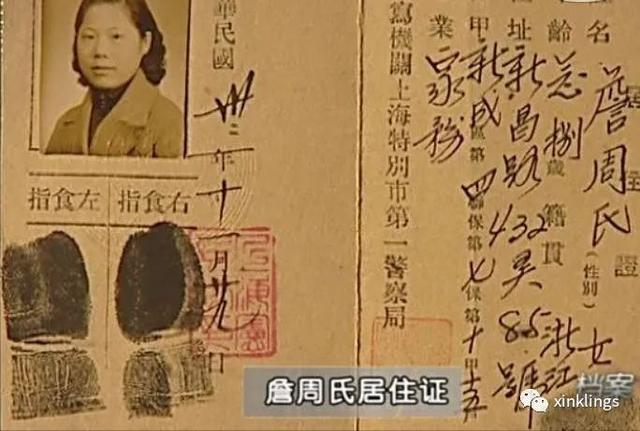 證
名 詹周氏 (性別) 女
齡 捌 歲 籍貫 浙江
址 新昌路432弄85號
甲 新成區第四聯保第七保第十甲
業 家務
寫機關上海特別市第一警察局
華民國卅二年十一月廿九日
指食右
指食左
詹周氏居住证
档案
xinklings